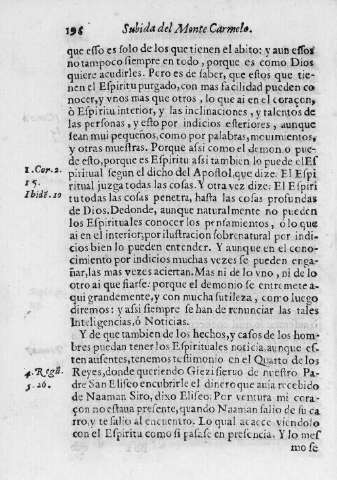 196 Subida del Monte Carmelo.
que esso es solo de los que tienen el abito: y aun essos
no tampoco siempre en todo, porque es como Dios
quiere acudirles. Pero es de saber, que estos que tie-
nen el Espiritu purgado, con mas facilidad pueden co
nocer, y vnos mas que otros, lo que ai en el coraçon,
ò Espiritu interior, y las inclinaciones, y talentos de
las personas, y esto por indicios esteriores, aunque
sean mui pequeños, como por palabras, movimientos,
y otras muestras. Porque assi como el demonio pue-
de esto, porque es Espiritu assi tambien lo puede el Es
piritual segun el dicho del Apostol, que dize. El Espi
ritual juzga todas las cosas. Y otra vez dize. El Espiri
tu todas las cosas penetra, hasta las cosas profundas
de Dios. Dedonde, aunque naturalmente no pueden
los Espirituales conocer los pensamientos, ò lo que
ai en el interior; por ilustracion sobrenatural por indi
cios bien lo pueden entender. Y aunque en el cono-
cimiento por indicios muchas vezes se pueden enga-
ñar, las mas vezes aciertan. Mas ni de lo vno, ni de lo
otro ai que fiarse: porque el demonio se entremete a-
qui grandemente, y con mucha sutileza, como luego
diremos: y assi siempre se han de renunciar las tales
Inteligencias, ò Noticias.
Y de que tambien de los hechos, y casos de los hom-
bres puedan tener los Espirituales noticia, aunque es-
ten ausentes, tenemos testimonio en el Quarto de los
Reyes, donde queriendo Giezi siervo de nuestro Pa-
dre San Eliseo encubrirle el dinero que avia recebido
de Naaman Siro, dixo Eliseo. Por ventura mi cora-
çon no estava presente, quando Naaman salio de su ca
rro, y te salio al encuentro. Lo qual acaece viendolo
con el Espiritu como si pasase en presencia. Y lo mes
mo se
1. Cor. 2.
15.
Ibidē. 10
4. Regū.
5. 26.